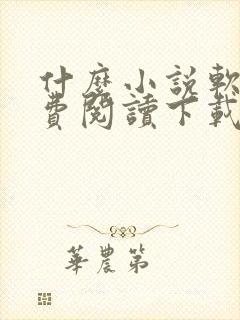 什麼小說軟
費閱讀下載
華農第